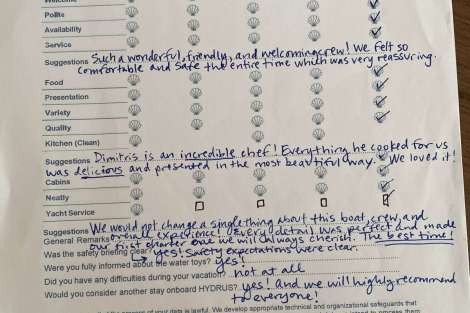 Welcome
Polite
Availability
Service
Suggestions Such a wonderful, friendly, and welcoming crew! We felt so
comfortable and safe the entire time which was very reassuring.
Food
Presentation
Variety
Quality
Kitchen (Clean)
Suggestions Dimitris is an incredible chef! Everything he cooked for us
was delicious and presented in the most beautiful way. We loved it!
Cabins
Neatly
Yacht Service
Suggestions We would not change a single thing about this boat, crew, and
General Remarks overall experience! Every detail was perfect and made
our first charter one we will always cherish. The best time!
Was the safety briefing clear? → yes! Safety expectations were clear.
Were you fully informed about the water toys? yes!
Did you have any difficulties during your vacation? not at all
Would you consider another stay onboard HYDRUS? yes! And we will highly recommend
to everyone!
of your data is lawful. We develop appropriate technical and organizational safeguards that